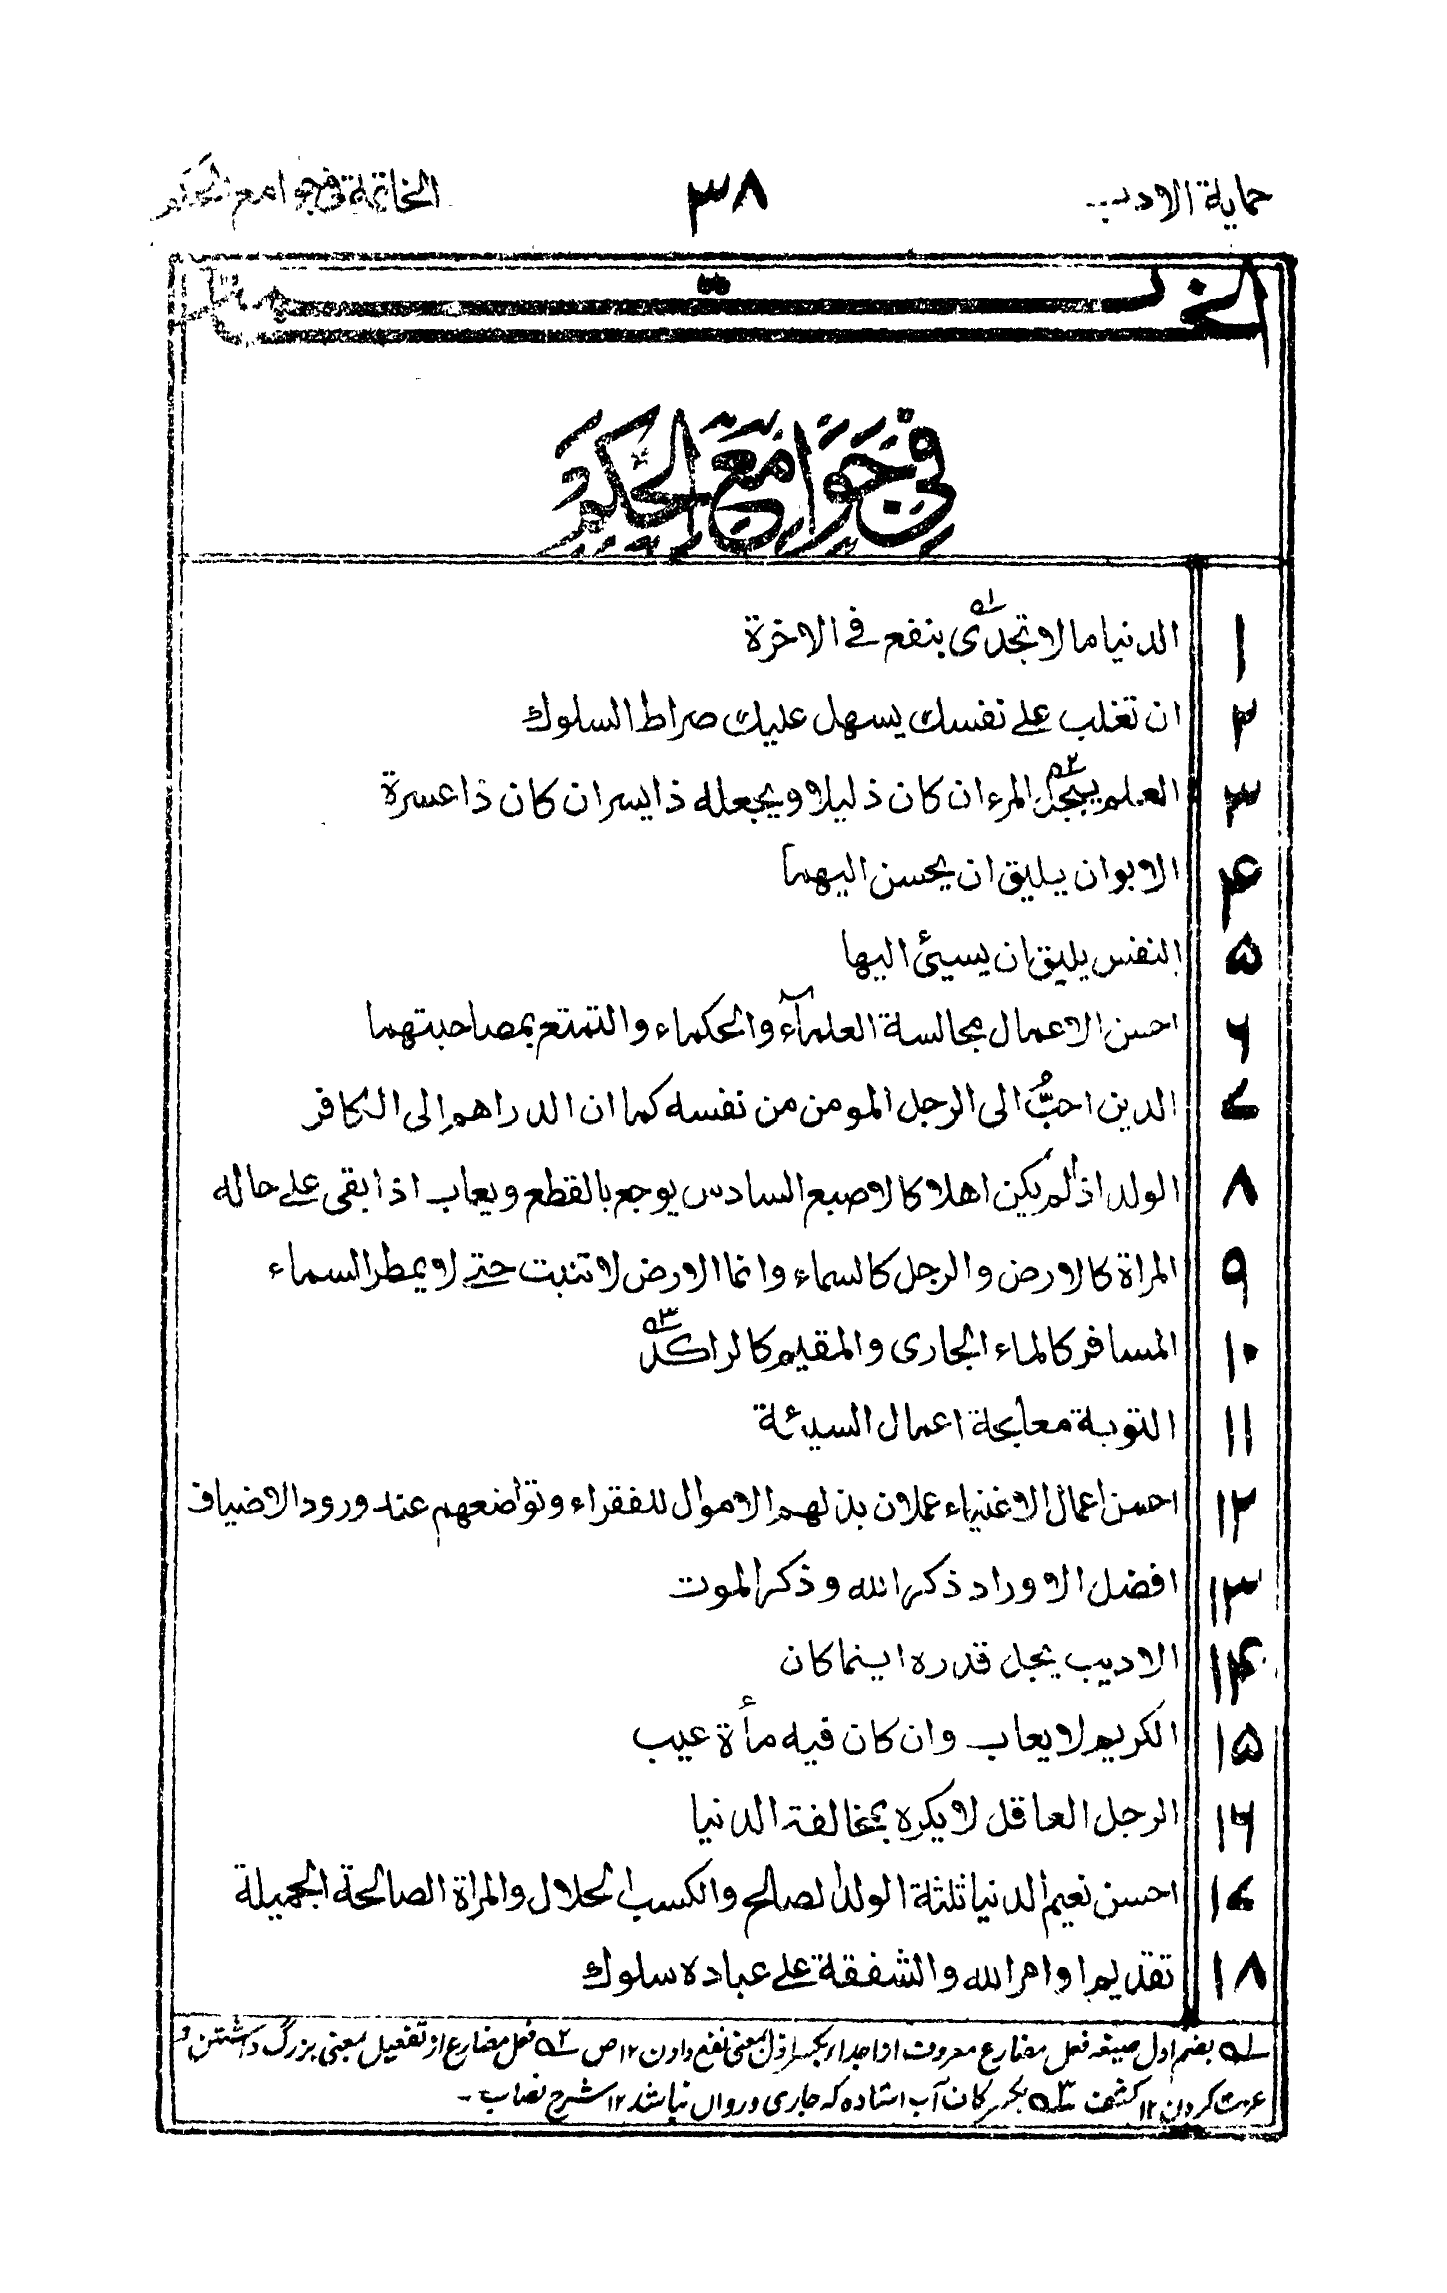 حماية الاديب ٣٨ الخاتمة فی جوامع الحكم
الخاتمة
فِی جَوَامَعِ الْحِكَمِ
١ الدنيا ما لا تجدی؂١ بنفع فے الاخرة
٢ ان تغلب علے نفسك يسهل عليك صراط السلوك
٣ العلم يبجل؂٢ المرء ان كان ذليلا ويجعله ذا يسر ان كان ذا عسرة
۴ الابوان يليق ان يحسن اليهما
۵ النفس يليق ان يسيئ اليها
۶ احسن الاعمال مجالسة العلمآء والحكماء والتمتع بمصاحبتهما
۷ الدين احبُّ الى الرجل المومن من نفسه كما ان الدراهم الى الكافر
۸ الولد اذ لم يكن اهلا كالاصبع السادس يوجع بالقطع ويعاب اذا بقى علے حاله
۹ المراة كالارض والرجل كالسماء وانما الارض لا تنبت حتے لا يمطر السماء
۱۰ المسافر كالماء الجارى والمقيم كالراكد؂٣
۱۱ التوبة معالجة اعمال السيئة
۱۲ احسن اعمال الاغنياء عملان بذلهم الاموال للفقراء وتواضعهم عند ورود الاضياف
۱۳ افضل الاوراد ذكر الله وذكر الموت
۱۴ الاديب يجل قدره اينما كان
۱۵ الكريم لا يعاب وان كان فيه مأة عيب
۱۶ الرجل العاقل لا يكره بمخالفة الدنيا
۱۷ احسن نعيم الدنيا ثلثة الولد الصالح والكسب الحلال والمراة الصالحة الجميلة
۱۸ تقديم اوامر الله والشفقة علے عباده سلوك
؂١ بضم اول صيغه فعل مضارع معروف از اجداء بكسر اول بمعنى نفع دادن ١٢ ص ؂٢ فعل مضارع از تفعيل بمعنى بزرگ داشتن و
عزت كردن ١٢ كشف ؂٣ بكسر كان آب استاده كه جارى و رواں نباشد ١٢ شرح نصاب ۔